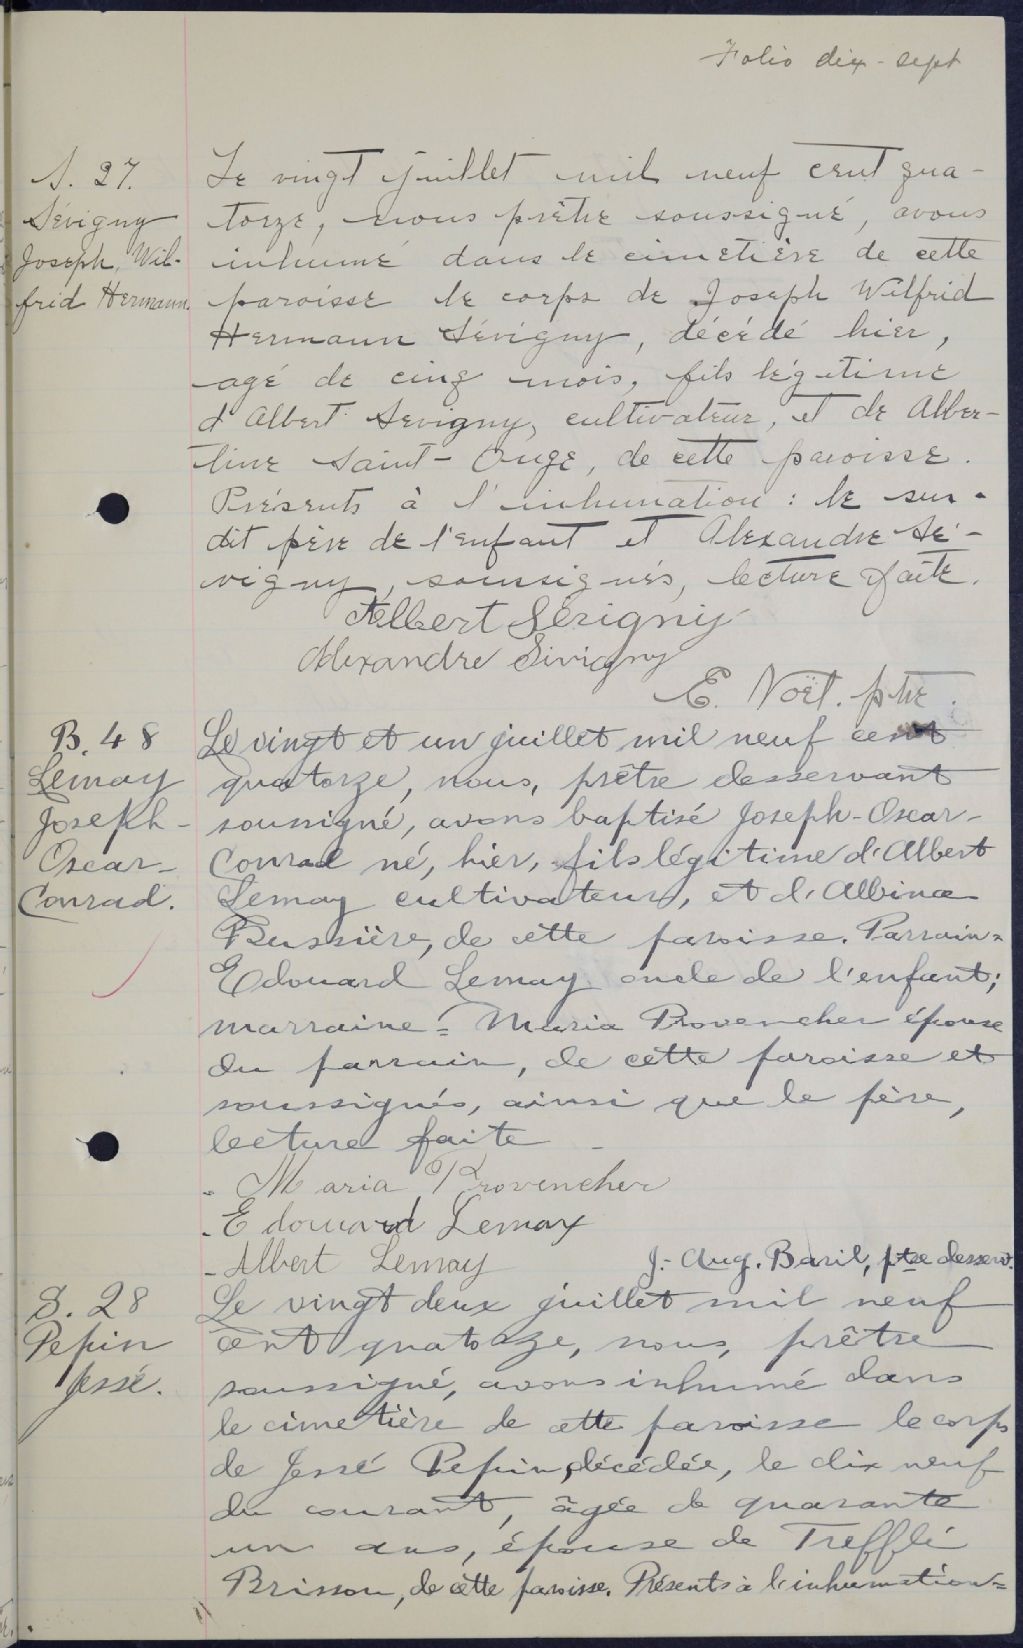 Folio dix-sept
S. 27.
Sévigny
Joseph, Wil-
frid Hermann.
Le vingt juillet mil neuf cent qua-
torze, nous prêtre soussigné, avons
inhumé dans le cimetière de cette
paroisse le corps de Joseph Wilfrid
Hermann Sévigny, décédé hier,
agé de cinq mois, fils légitime
d'Albert Sevigny, cultivateur, et de Alber-
tine Saint-Onge, de cette paroisse.
Présents à l'inhumation : le sus-
dit père de l'enfant et Alexandre Sé-
vigny, soussignés, lecture faite.
Albert Sévigny
Alexandre Sivigny
E. Noël. ptre.
B. 48
Lemay
Joseph-
Oscar-
Conrad.
Le vingt et un juillet mil neuf cent
quatorze, nous, prêtre desservant
soussigné, avons baptisé Joseph-Oscar-
Conrad né, hier, fils légitime d'Albert
Lemay cultivateur, et d'Albina
Bussière, de cette paroisse. Parrain=
Edouard Lemay oncle de l'enfant;
marraine= Maria Provencher épouse
du parrain, de cette paroisse et
soussignés, ainsi que le père,
lecture faite -
- Maria Provencher
- Edouard Lemay
- Albert Lemay
J.-Aug. Baril, ptre desserv.
S. 28
Pepin
Jessé.
Le vingt deux juillet mil neuf
cent quatorze, nous, prêtre
soussigné, avons inhumé dans
le cimetière de cette paroisse le corps
de Jessé Pepin, décédée, le dix neuf
du courant, âgée de quarante
un ans, épouse de Trefflé
Brisson, de cette paroisse. Présents à l'inhumation=